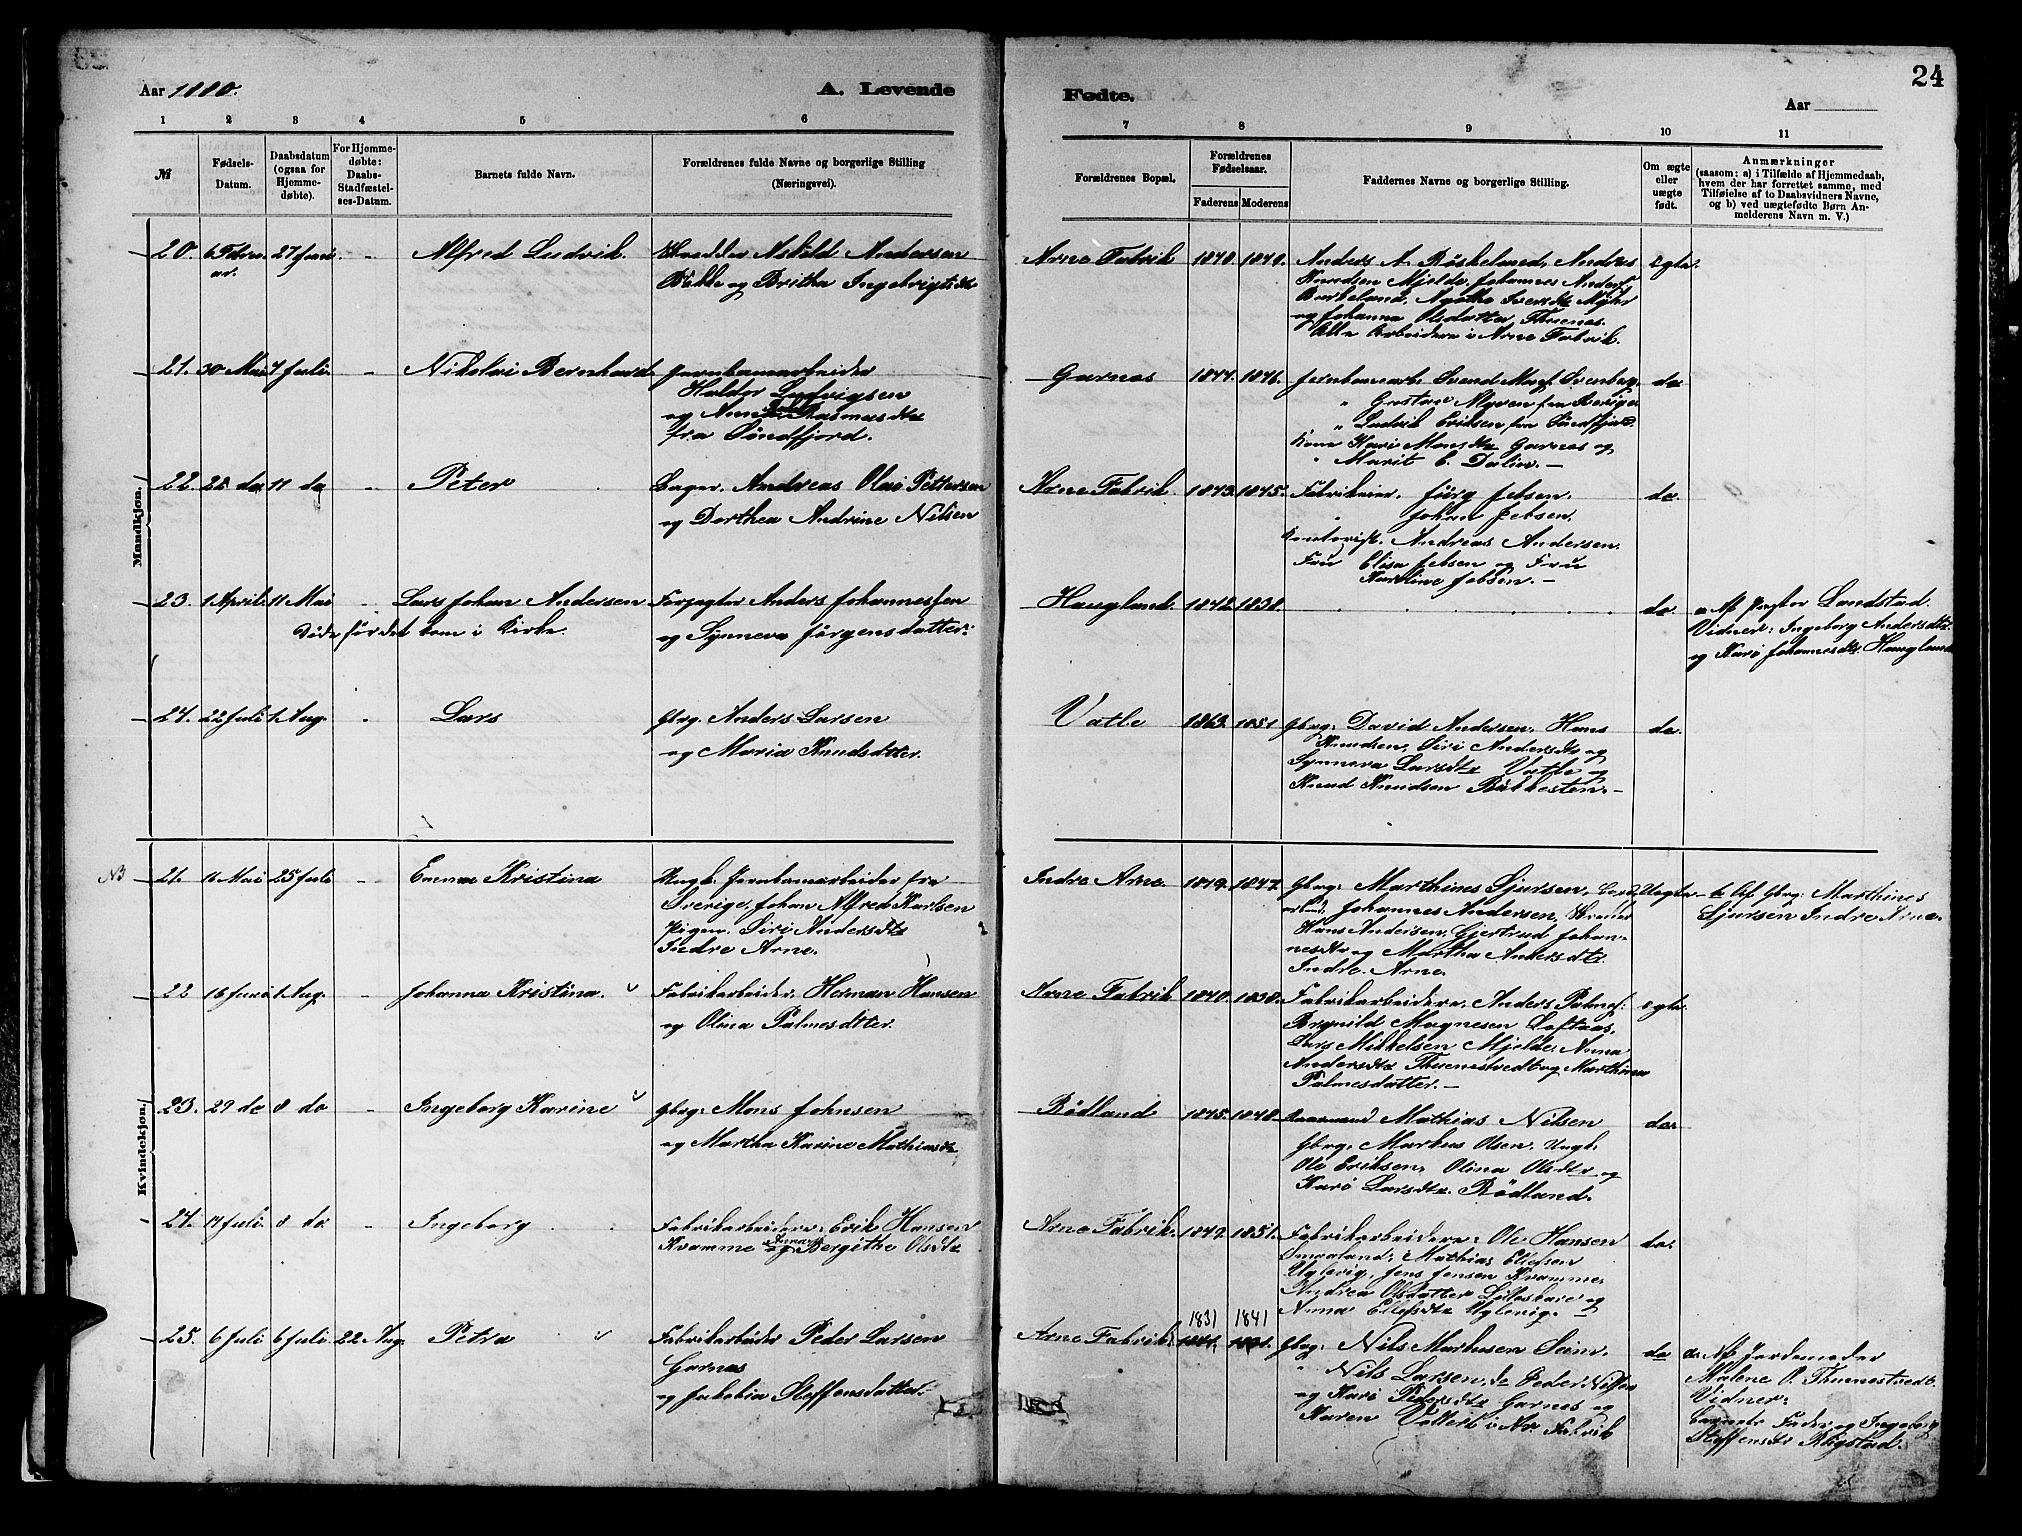 24
Aar 1880.
A. Levende
Fødte.
Aar
1 2 3 4 5 6 7 8 9 10 11
№
Fødsels-
Datum.
Daabsdatum
(ogsaa for
Hjemme-
døbte).
For Hjemme-
døbte:
Daabs-
Stadfæstel-
ses-Datum.
Barnets fulde Navn.
Forældrenes fulde Navne og borgerlige Stilling
(Næringsvei).
Forældrenes Bopæl.
Forældrenes
Fødselsaar.
Faderens Moderens
Faddernes Navne og borgerlige Stilling.
Om ægte
eller
uægte
født.
Anmærkninger
(saasom: a) i Tilfælde af Hjemmedaab,
hvem der har forrettet samme, med
Tilføielse af to Daabsvidners Navne,
og b) ved uægtefødte Børn An-
melderens Navn m. V.)
Mandkjøn.
20. 27 Juni Alfred Ludvik.
Askild Andersen
og Britha Ingebrigtsdtr
Arne Fabrik 1840. 1840.
Anders A. Røskeland, Andres
Knudsen Mjelde, Johannes Anders.
Burkeland,
og Johanna Olsdatter
Alle Arbeidere i Arne Fabrik.
ægte.
21. 30 Mai 4 Juli Nikolai Bernhard.
Jernbanearbeider
Halder Ludvigsen
og Rasmusdtr
fra Søndfjord.
Garnes 1844. 1846.
Jernbanearb. Svend
" Gustav fra Sverige
" Ludvik Eriksen fra Søndfjord.
Kone Kari Monsdtr Garnes og
" Marit C. Dalin. —
do
22. 11 do Peter
Bager, Andreas Olai Pettersen
og Dorthea Andrine Nilsen
Arne Fabrik 1843. 1845.
Fabrikeier, Jürg Jebsen.
" Johan Jebsen.
Kontorist. Andreas Andersen.
Fru Elisa Jebsen og Fru
Karoline Jebsen. —
do.
23. 1 April. 11 Mai Lars Johan Andersen
Døde før det kom i Kirke.
Forpagter Anders Johannessen
og Synneva Jørgensdatter.
Haugland. 1842. 1838.
do.
a. Af Pastor Landstad.
Vidner: Ingeborg Andersdtr.
og Kari Johannesdtr. Haugland
24. 22 Juli 1 Aug. Lars
Gbrg. Anders Larsen
og Maria Knudsdatter.
Vatle 1863. 1851.
Gbrg: David Andersen, Hans
Knudsen, Siri Andersdtr og
Synneva Larsdtr Vatle og
Knud Knudsen Bükkesten. —
do.
Kvindekjøn.
NB 21. 11 Mai 25 Juli Emma Kristina
Ungk. Jernbanearbeider fra
Sverige, Johan Alfred Karlsen
Pigen, Siri Andersdtr
Indre Arne.
Indre Arne. 1849. 1847.
Gbrg: Marthines Sjursen,
Johannes Andersen,
Hans Andersen, Gjertrud Johan-
nesdtr og Martha Andersdtr.
Indre. Arne.
Uægte
b. Af Gbrg: Marthines
Sjursen Indre Arne.
22 16 Juni 1 Aug. Johanna Kristina.
Fabrikarbeider, Herman Hansen
og Olina Palmesdtter.
Arne Fabrik 1840. 1838.
Fabrikarbeidere, Anders Palmes.
Brynild Magnesen Loftaas,
Lars Mikkelsen Mjelde, Anna
Andersdtr Thunestvedt og Marthina
Palmesdatter. —
ægte.
23. 29 do 8 do Ingeborg Karine
Gbrg: Mons Johnsen
og Martha Karine Mathiasdtr
Rødland 1845. 1848.
Mathias Nilsen
Gbrg: Markus Olsen, Ungk.
Ole Eriksen, Olina Olsdtr og
Kari Larsdtr. Rødland.
do.
24. 14 Juli. 8 do. Ingeborg
Fabrikarbeider. Erik Hansen
Kvamme og Bergithe Olsdtr
Arne Fabrik. 1849. 1851.
Fabrikarbeidere: Ole Hansen
Smaaland, Mathias Ellefsen
Uglevig, Jens Jensen Kvamme,
Andrea Olsdatter Lilleskare og
Anna Ellefsdtr Uglevig. —
do.
25. 6 Juli 6 Juli 22 Aug. Petra
Fabrikarbeider Peder Larsen
Garnes
og Jakobia Steffensdatter.
Arne Fabrik. 1831 1841
Gbrg: Nils Markusen Seim.
" Nils Larsen, do Peder Nilsen
og Kari Pedersdtr Garnes og
Karen i Ar. Fabrik
do
a. Af Jordemoder
Malene O. Thunestvedt.
Vidner:
Barnets Fader og Ingeborg
Steffensdtr